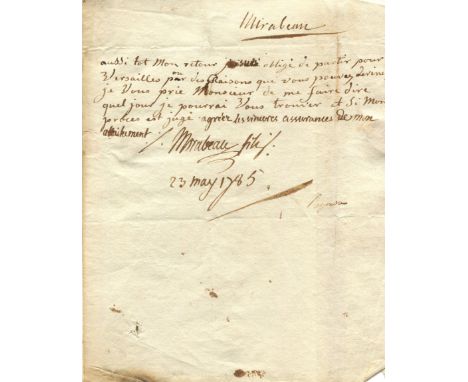 Mirabeau
aussi tot mon retour obligé de partir pour
Versailles ou par des Raisons que vous pouvez devine
je vous prie Monsieur de me faire dire
quel jour je pourrai vous trouver et si mon
proces est jugé agréer les sinceres assurances de mon
attachement
Mirabeau fils
23 may 1785